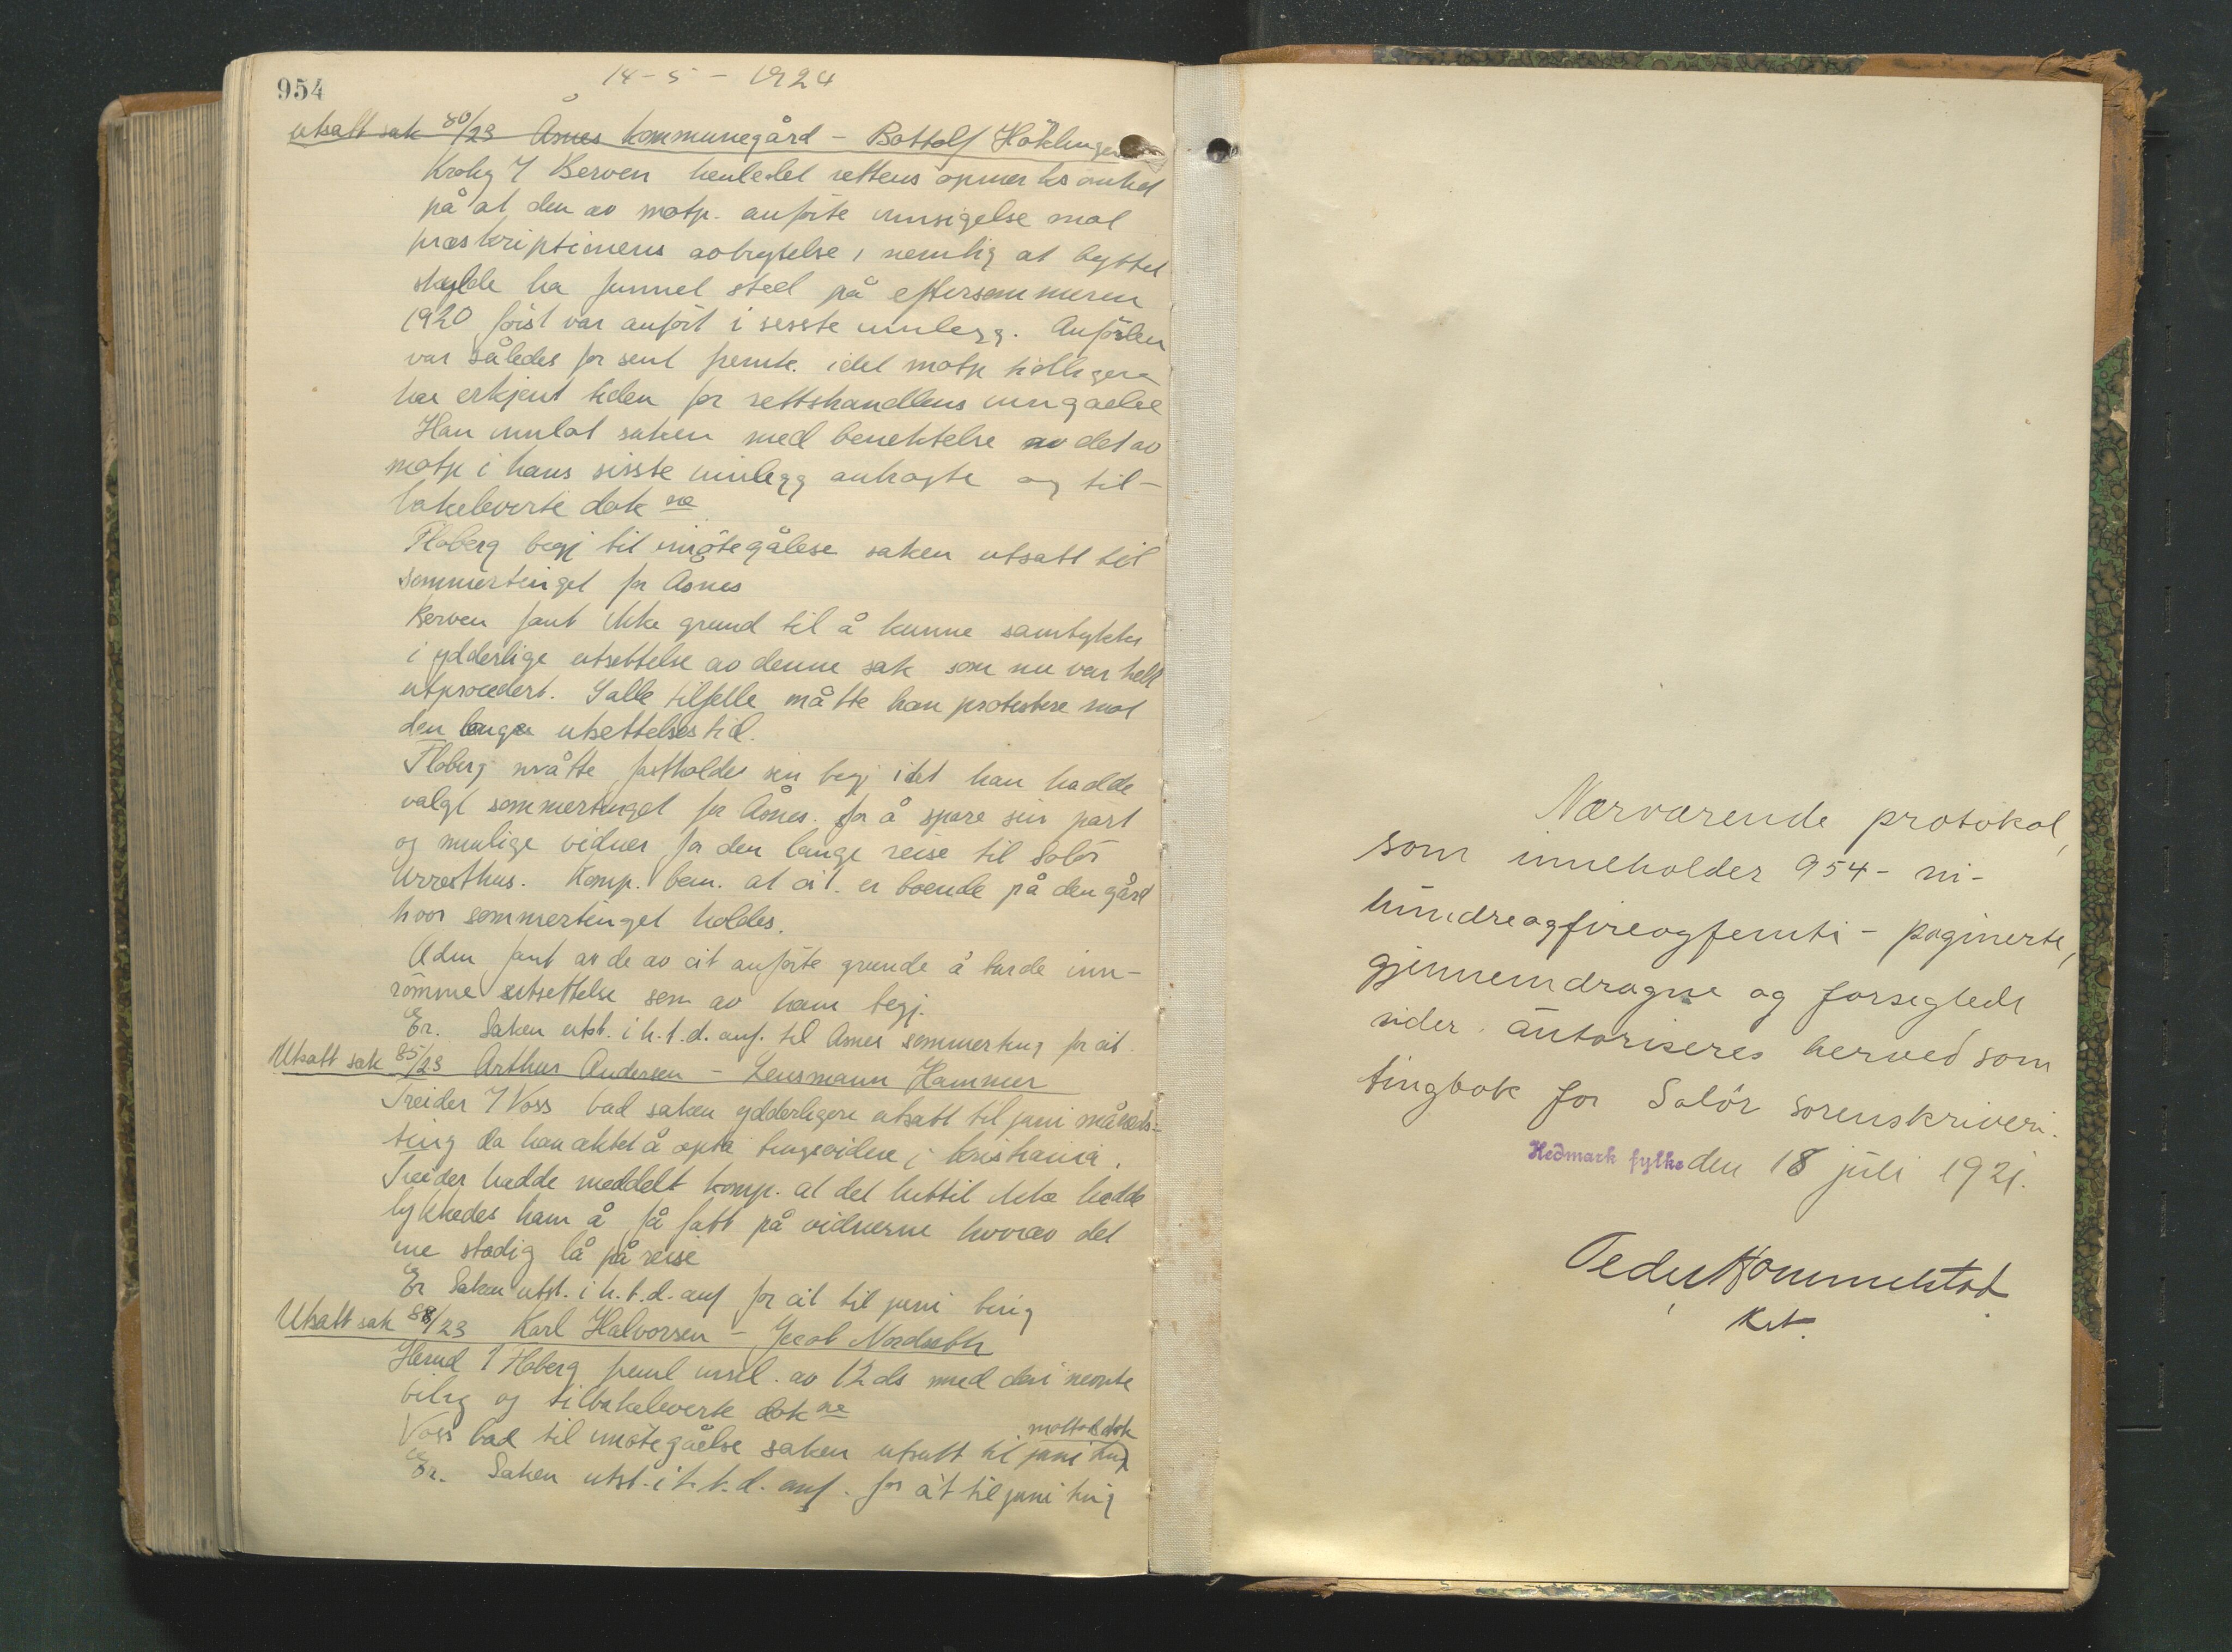 954
14-5-1924
Utsatt sak 80/23 Åsnes kommunegård - Bottolf
Krohg / Berven henledet rettens opmerksomhet
på at den av motp. anførte innsigelse mot
præskriptionens avbrytelse, nemlig at byttet
skulde ha funnet sted på eftersommeren
1920 først var anført i sisste innlegg. Anførslen
var således for sent fremk. idet motp tidligere
har erkjent tiden for rettshandlens inngåelse
Han innlot saken med benektelse av det av
motp i hans sisste innlegg anhragte og til-
bakeleverte dok ne
Floberg begj til imøtegåelse saken utsatt til
sommertinget for Åsnes
Berven fant ikke grund til å kunne samtykke
i ydderlige utsettelse av denne sak som nu var helt
utprocedert. I alle tilfelle måtte han protestere mot
den lange utsettelsestid.
Floberg måtte fastholde sin begj idet han hadde
valgt sommertinget for Åsnes. for å spare sin part
og mulige vidner for den lange reise til Solør
Arresthus. Komp. bem. at cit. er boende på den gård
hvor sommertinget holdes.
Adm fant av de av cit anførte grunde å burde inn-
rømme utsettelse som av ham begj.
Er. Saken utst. i h.t.d. anf. til Åsnes sommerting for cit.
Utsatt sak 85/23 Arthur Andersen - Lensmann Hammer
Treider / Voss bad saken ydderligere utsatt til juni måneds-
ting da han aktet å opta tingsvidne i Kristiania.
Treider hadde meddelt komp. at det hittil ikke hadde
lykkedes ham å få fatt på vidnerne hvorav det
ene stadig lå på reise
Er Saken utst. i h.t.d. anf for cit til juni ting
Utsatt sak 88/23 Karl Halvorsen - Jacob Nordseth
/ Floberg freml innl. av 12 ds med deri nevnte
bilag og tilbakeleverte dok ne
mottok dok
Voss bad til imøtegåelse saken utsatt til juni ting
Er. Saken utst. i h.t.d. anf. for cit til juni ting
Nærværende protokol,
som inneholder 954 - ni-
hundreogfireogfemti - paginerte,
gjennemdragne og forseglede
sider, autoriseres herved som
tingbok for Solør sorenskriveri.
Hedmark fylke den 18 juli 1921.
Peder Hommelstad
Kst.